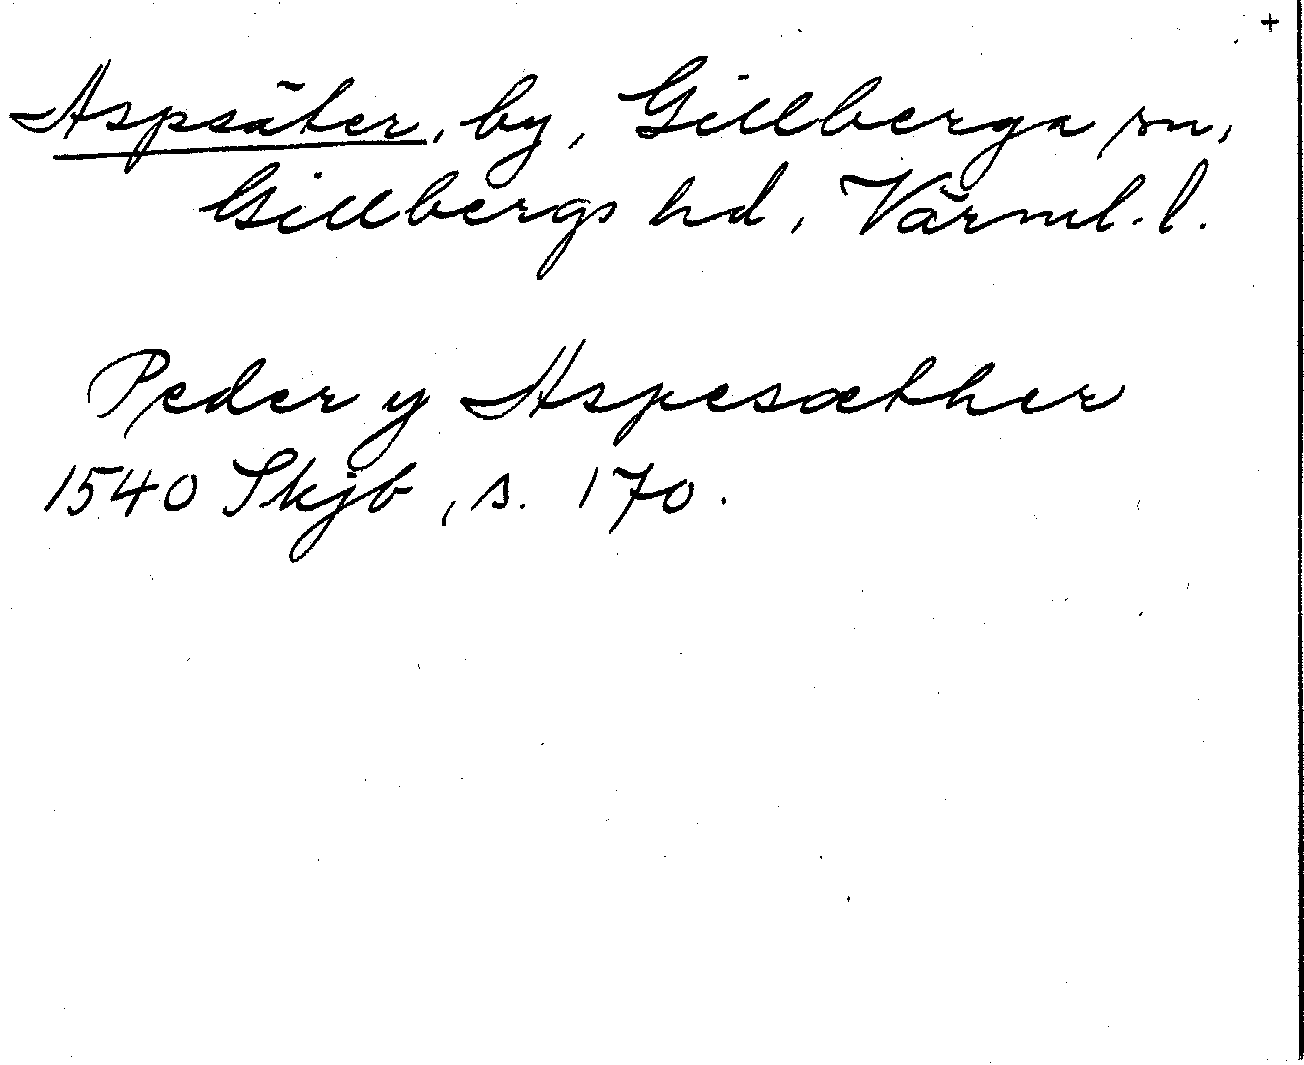 +
Aspsäter, by, Gillberga sn,
Gillbergs hd, Värml. l.
Peder y Aspesæther
1540 Skjb, s. 170.